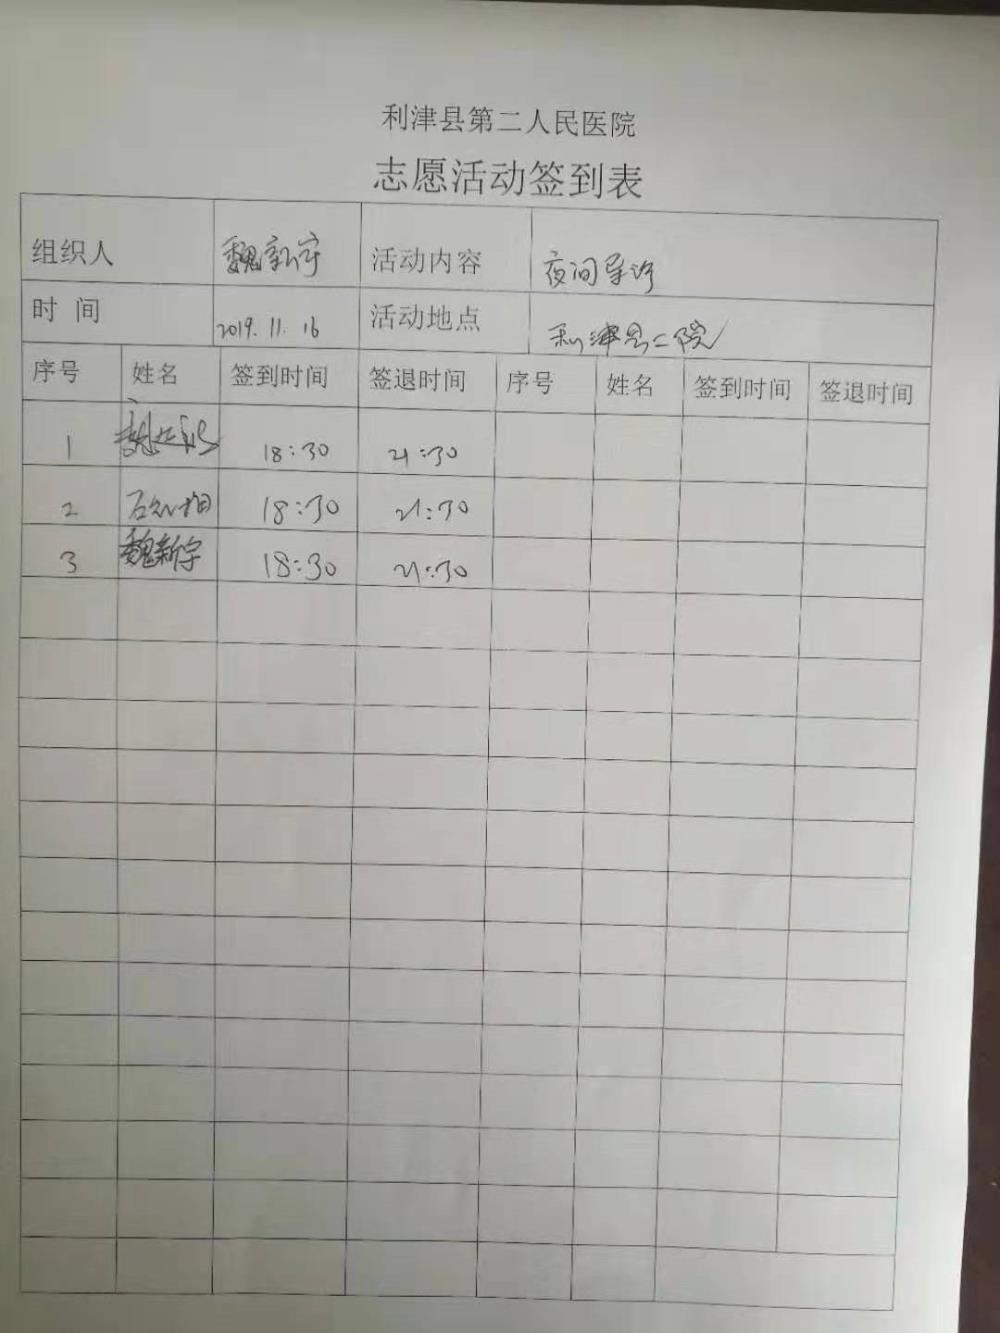 利津县第二人民医院
志愿活动签到表
组织人 魏新宇 活动内容 夜间导诊
时 间 2019.11.16 活动地点 利津县二院
序号 姓名 签到时间 签退时间 序号 姓名 签到时间 签退时间
1 18:30 21:30
2 18:30 21:30
3 魏新宇 18:30 21:30